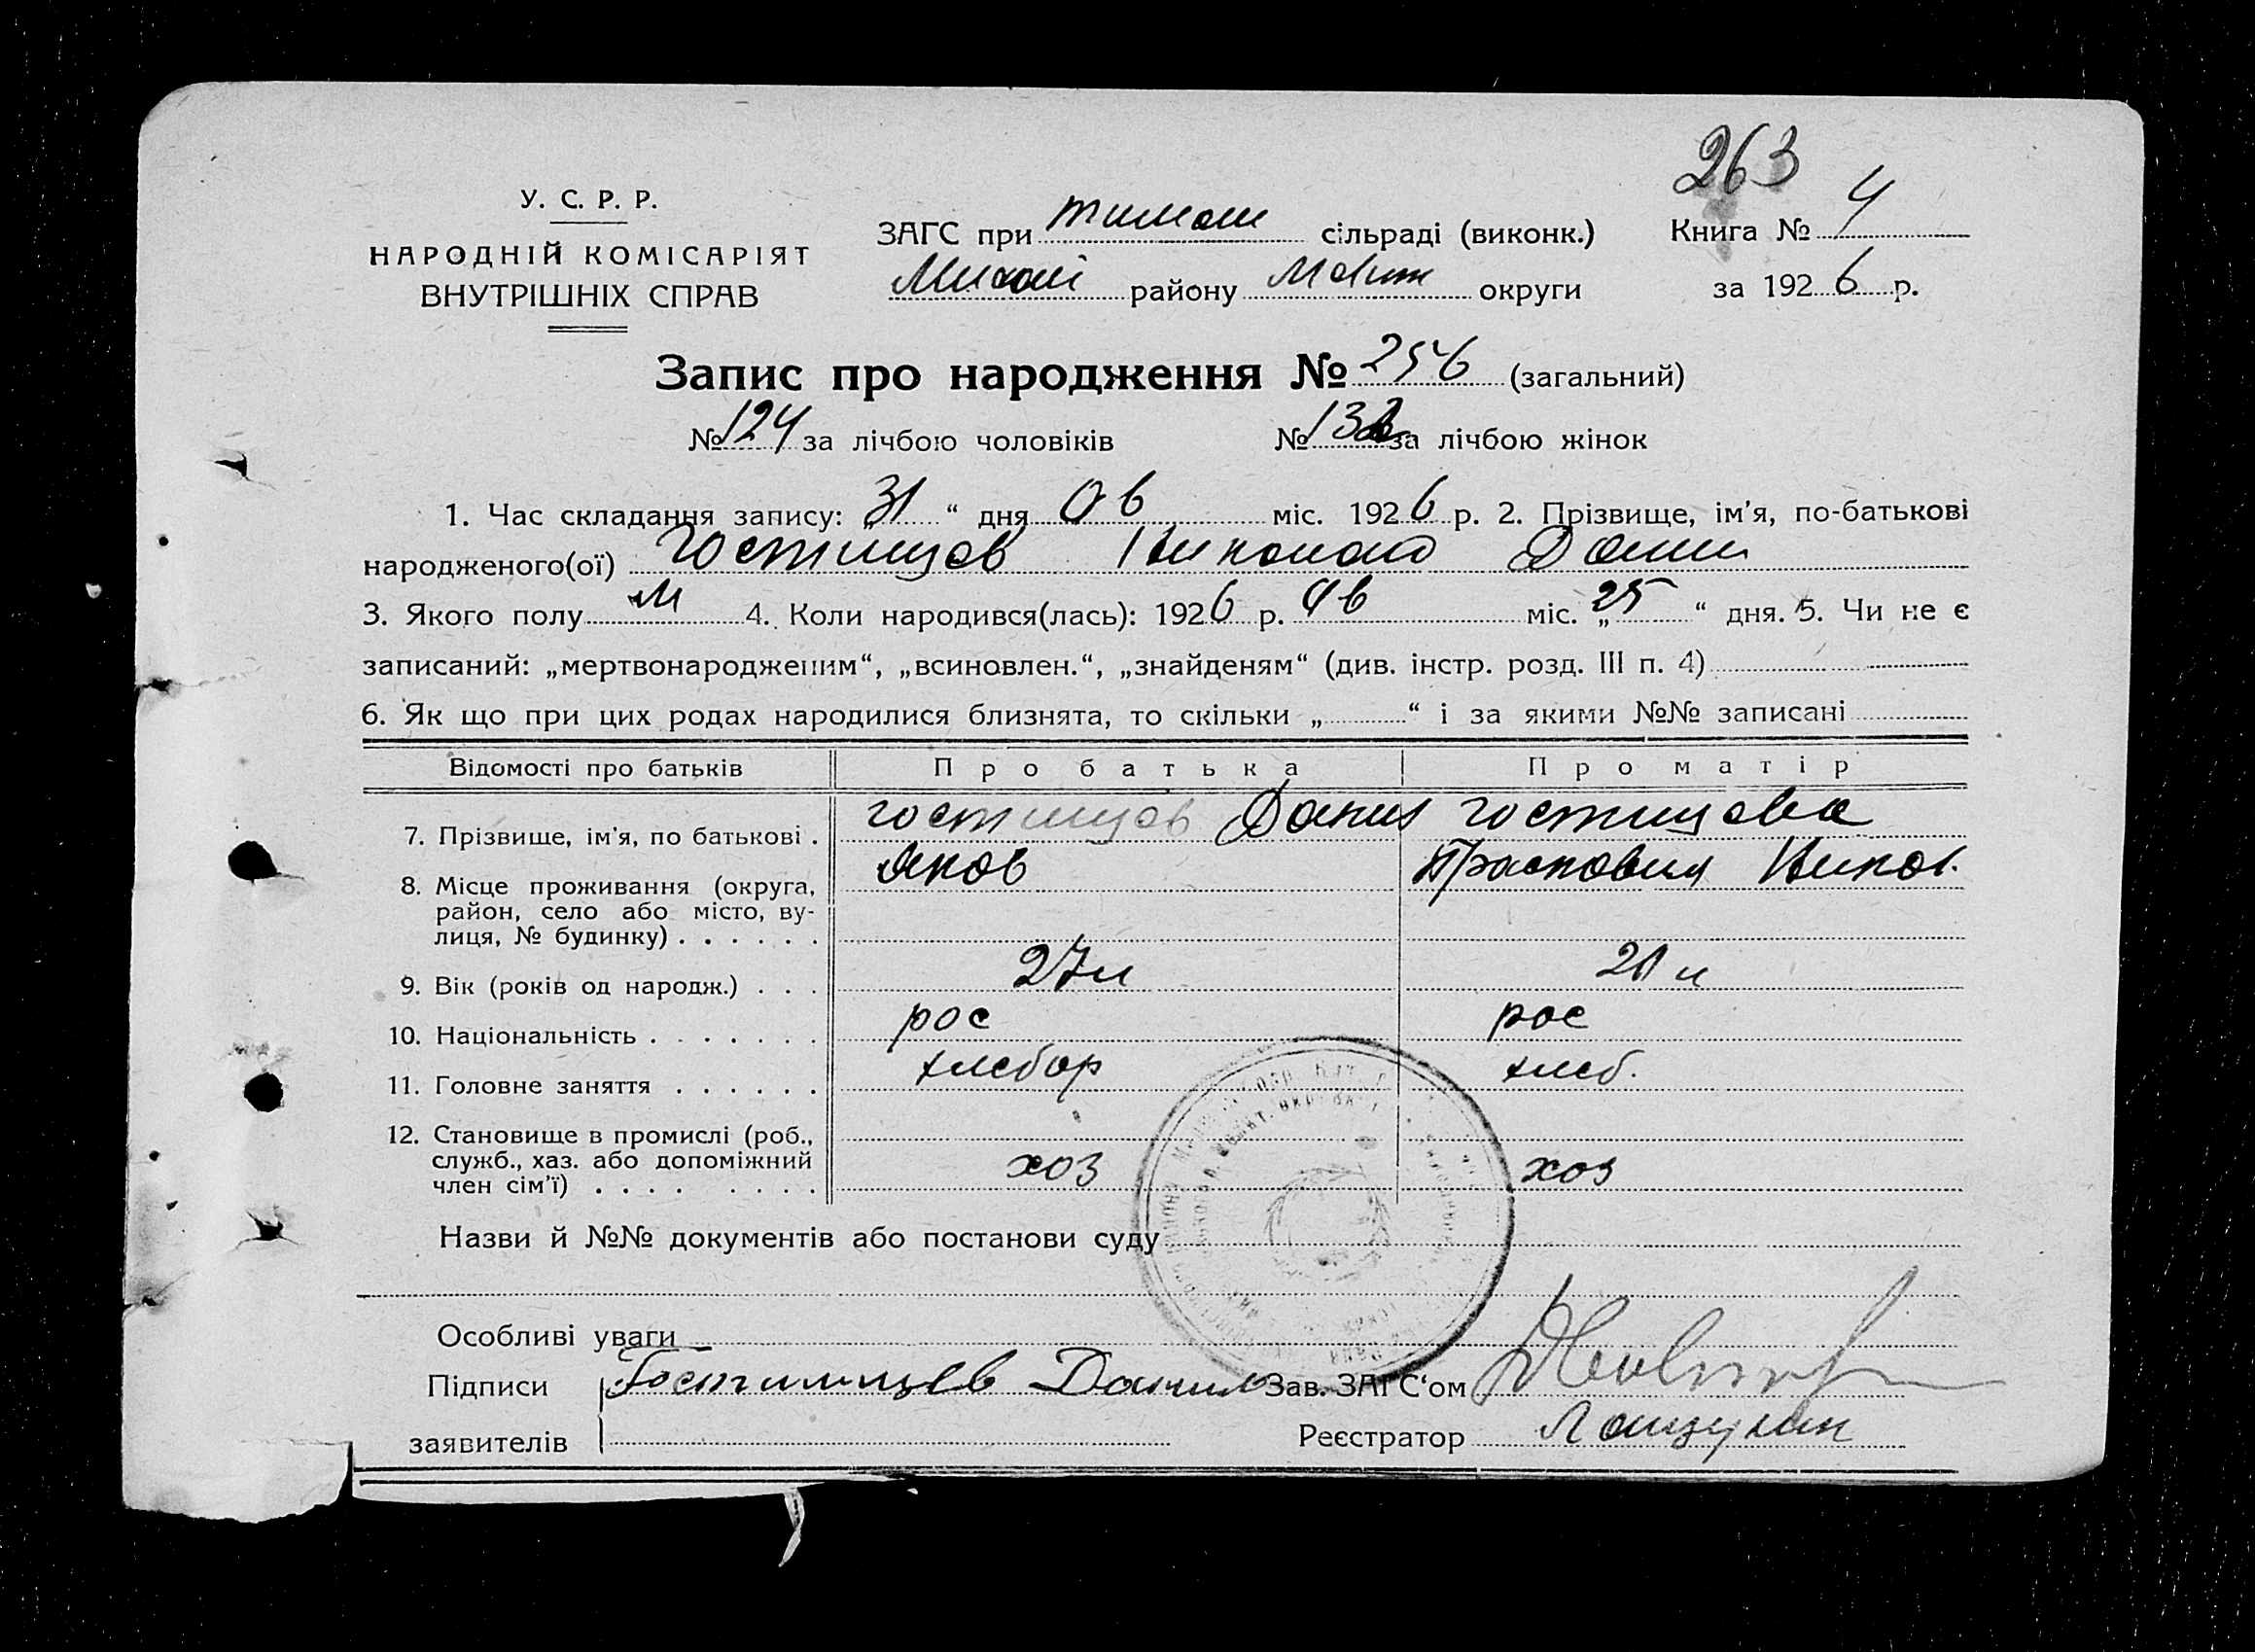 263
У. С. Р. Р.
НАРОДНІЙ КОМІСАРІЯТ
ВНУТРІШНІХ СПРАВ
ЗАГС при тимош сільраді (виконк.)
району Мелит округи
Книга № 4
за 1926 р.
Запис про народження № 256 (загальний)
№ 124 за лічбою чоловіків № 132 за лічбою жінок
1. Час складання запису: „31“ дня Ов міс. 1926 р. 2. Прізвище, ім'я, по-батькові
народженого(ої) Гостищев Николай Данил
3. Якого полу м 4. Коли народився(лась): 1926 р. Ов міс. „25“ дня. 5. Чи не є
записаний: „мертвонародженим“, „всиновлен.“, „знайденям“ (див. інстр. розд. III п. 4)
6. Як що при цих родах народилися близнята, то скільки „ “ і за якими №№ записані
Відомості про батьків Про батька Про матір
7. Прізвище, ім'я, по батькові . гостищев Данил гостищева
Яков Прасковия Никол.
8. Місце проживання (округа,
район, село або місто, ву-
лиця, № будинку) . . . . . .
9. Вік (років од народж.) . . . 27 л 21 л
10. Національність . . . . . . . рос рос
11. Головне заняття . . . . . . хлебор хлеб.
12. Становище в промислі (роб.,
служб., хаз. або допоміжний
член сім'ї) . . . . . . . . хоз хоз
Назви й №№ документів або постанови суду
Особливі уваги
Підписи Гостищев Данил Зав. ЗАГС'ом
заявителів Реєстратор Лащухин